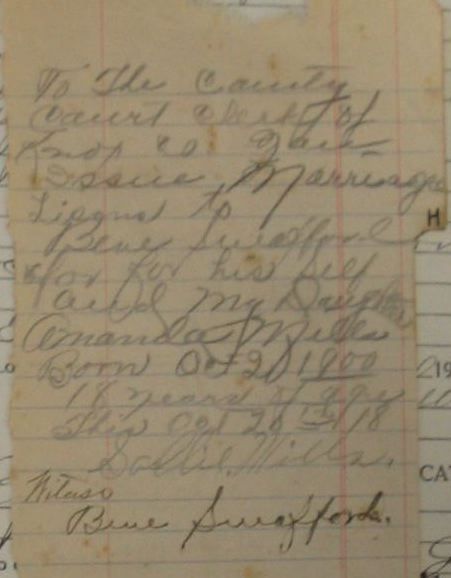 To The County
Court Clerk of
Knox Co.
Issue Marriage
Licens to
Beve Swafford
for for his self
and My Daughter
Amanda Mills
Born Oct 20 1900
18 years of age
This Oct 20 1918
Sallie Mills.
Witness
Beve Swafford.
H
19
CAT